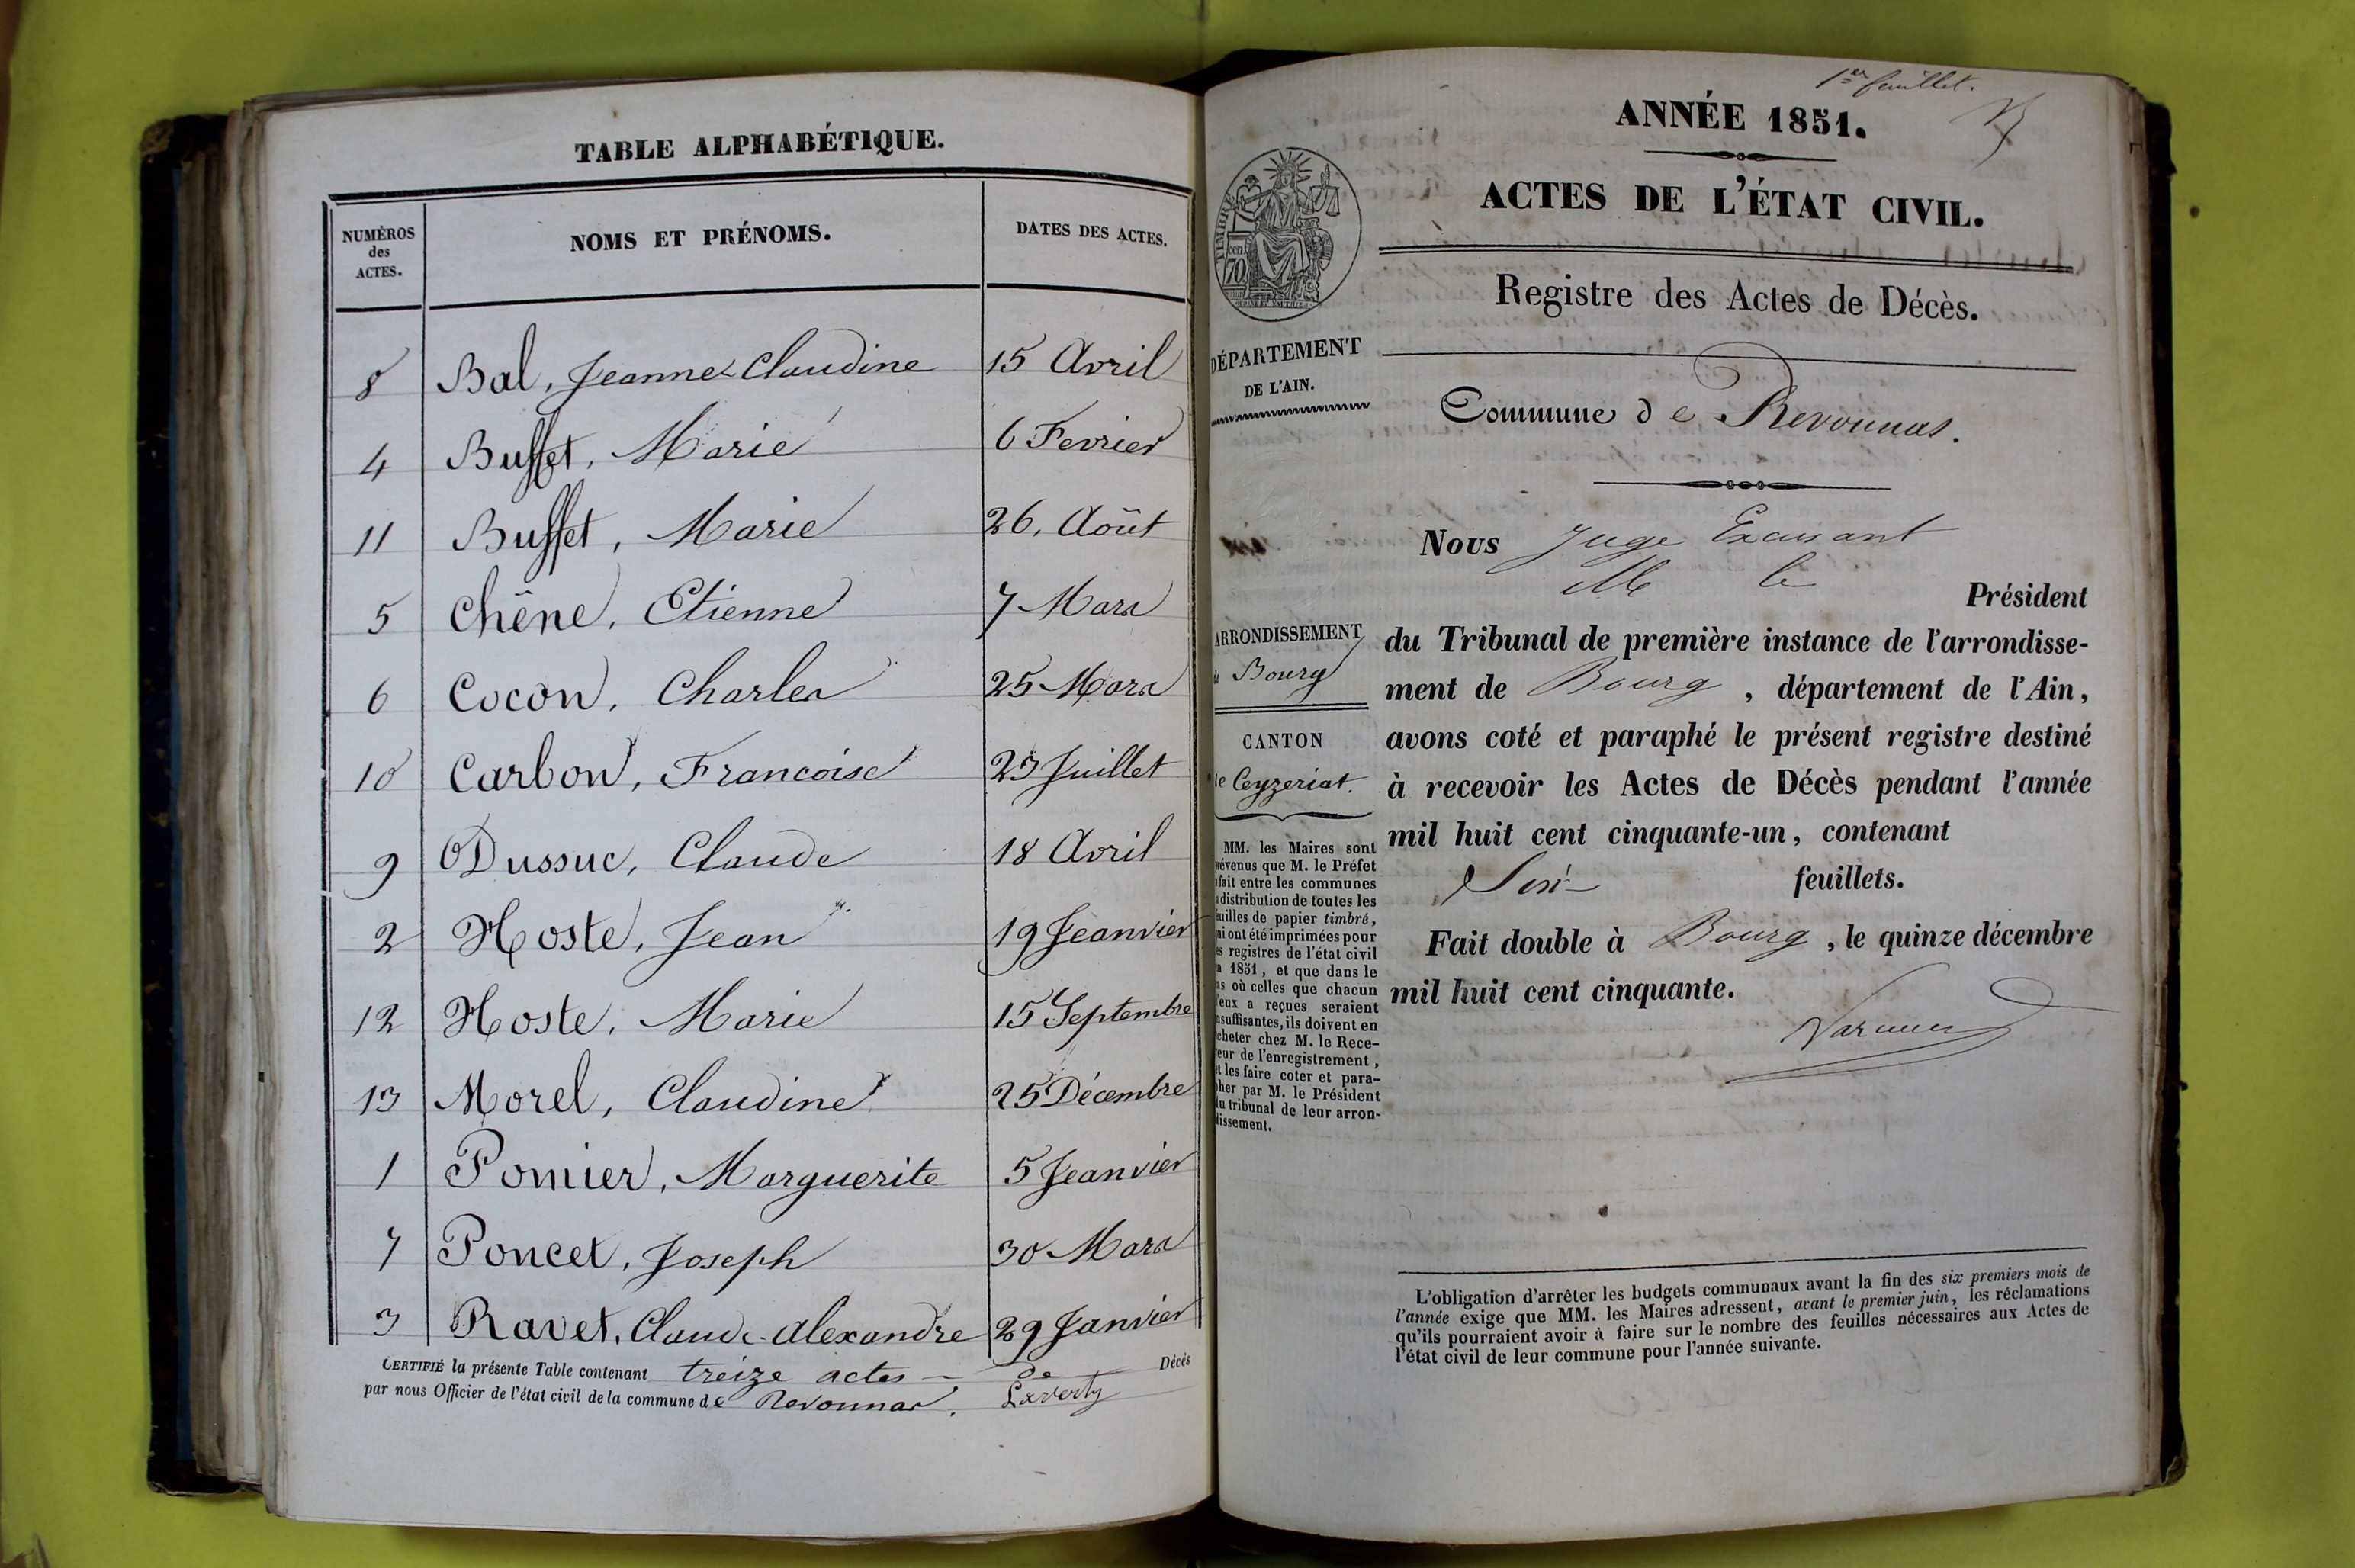 TABLE ALPHABÉTIQUE.
NUMÉROS des ACTES. NOMS ET PRÉNOMS. DATES DES ACTES.
8 Bal, Jeanne Claudine 15 Avril
4 Buffet, Marie 6 Fevrier
11 Buffet, Marie 26, Août
5 Chêne, Etienne 7 Mars
6 Cocon, Charles 25 Mars
10 Carbon, Francoise 23 Juillet
9 Dussuc, Claude 18 Avril
2 Hoste, Jean 19 Jeanvier
12 Hoste, Marie 15 Septembre
13 Morel, Claudine 25 Décembre
1 Pomier, Marguerite 5 Jeanvier
7 Poncet, Joseph 30 Mars
3 Ravet, Claude-Alexandre 29 Janvier
CERTIFIÉ la présente Table contenant treize actes de Décès
par nous Officier de l'état civil de la commune de Revonnas.
1er feuillet.
ANNÉE 1851.
ACTES DE L'ÉTAT CIVIL.
TIMBRE
70
Registre des Actes de Décès.
DÉPARTEMENT
DE L'AIN.
Commune de Revonnas.
Nous Juge
M le Président
ARRONDISSEMENT
Bourg
CANTON
de Ceyzeriat.
MM. les Maires sont
prévenus que M. le Préfet
fait entre les communes
distribution de toutes les
feuilles de papier timbré,
qui ont été imprimées pour
les registres de l'état civil
1851, et que dans le
cas où celles que chacun
d'eux a reçues seraient
insuffisantes, ils doivent en
acheter chez M. le Rece-
veur de l'enregistrement,
et les faire coter et para-
pher par M. le Président
du tribunal de leur arron-
dissement.
du Tribunal de première instance de l'arrondisse-
ment de Bourg, département de l'Ain,
avons coté et paraphé le présent registre destiné
à recevoir les Actes de Décès pendant l'année
mil huit cent cinquante-un, contenant
feuillets.
Fait double à Bourg, le quinze décembre
mil huit cent cinquante.
L'obligation d'arrêter les budgets communaux avant la fin des six premiers mois de
l'année exige que MM. les Maires adressent, avant le premier juin, les réclamations
qu'ils pourraient avoir à faire sur le nombre des feuilles nécessaires aux Actes de
l'état civil de leur commune pour l'année suivante.